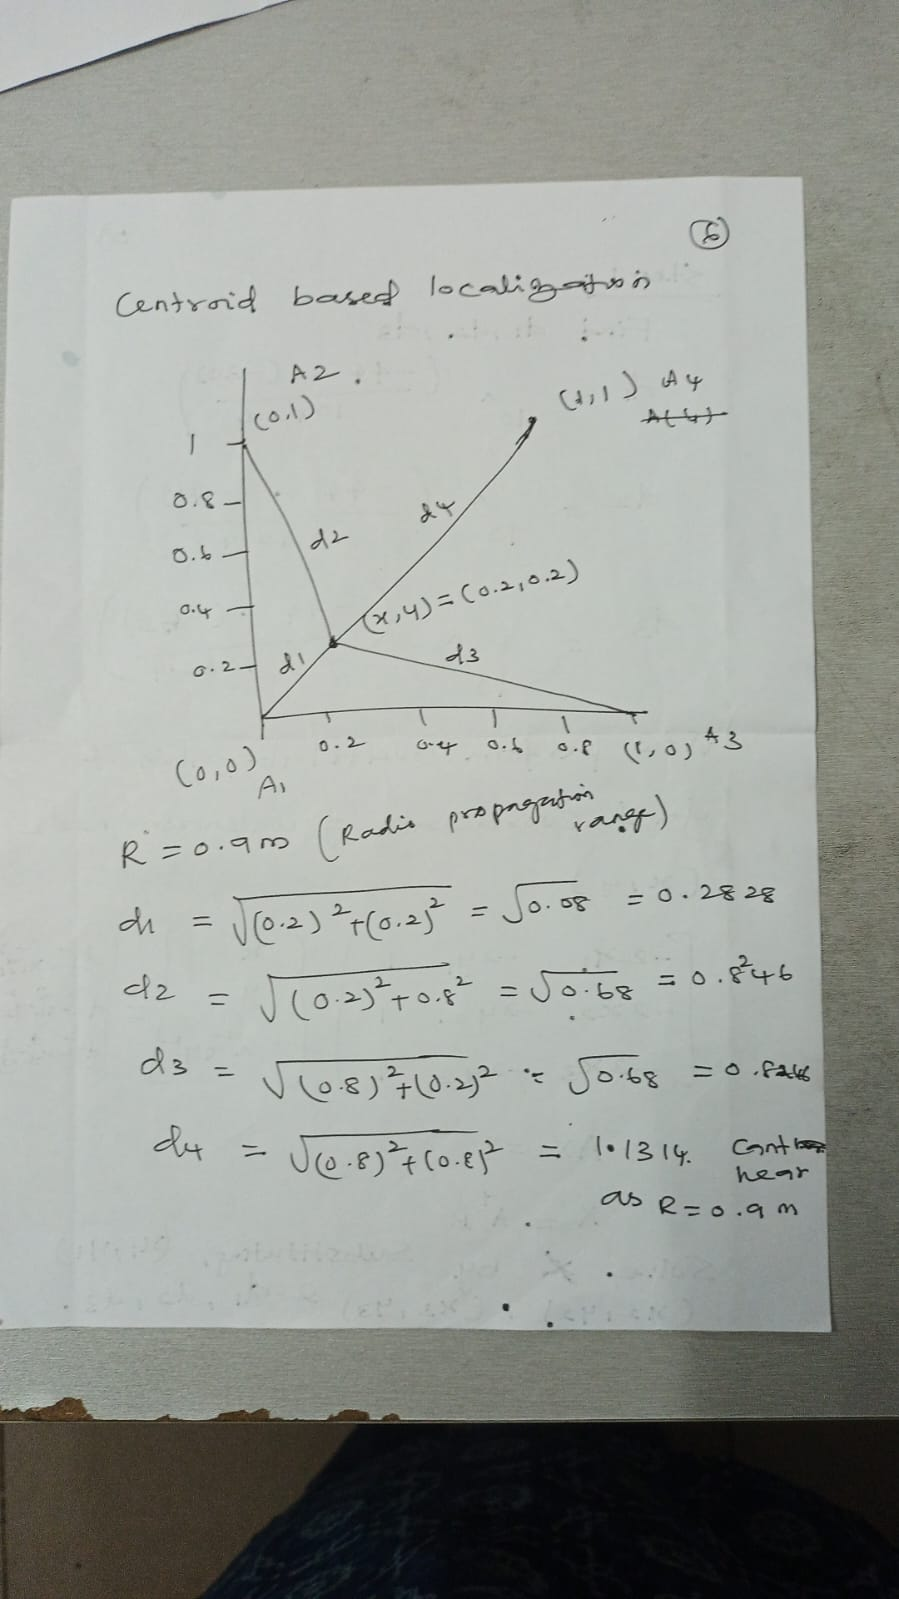 6
Centroid based localization
A2.
(0,1)
(1,1) A4
A(4)
1
0.8
0.6
0.4
0.2
d2
d4
(x,y)=(0.2,0.2)
d1
d3
0.2 0.4 0.6 0.8 (1,0) A3
(0,0)
A1
R = 0.9m (Radio propagation
range)
d1 = √(0.2)²+(0.2)² = √0.08 = 0.2828
d2 = √(0.2)²+0.8² = √0.68 = 0.8246
d3 = √(0.8)²+(0.2)² = √0.68 = 0.8246
d4 = √(0.8)²+(0.8)² = 1.1314. Cant
hear
as R=0.9m